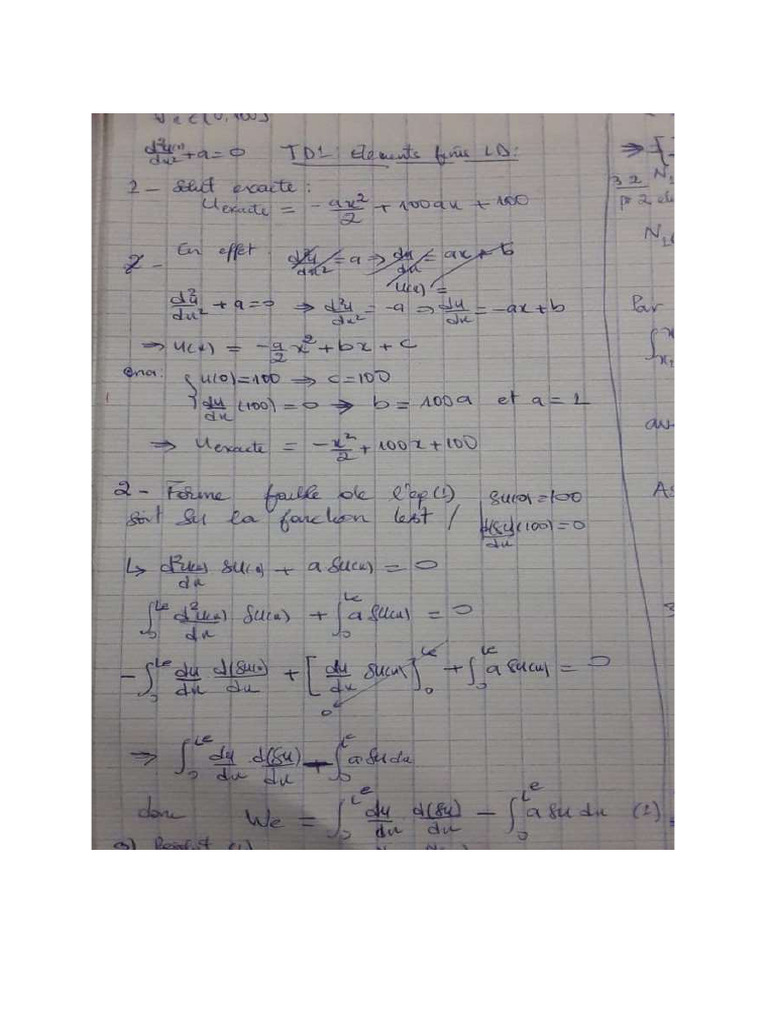 d²u(x)/dx² + a = 0 TD1 elements finis 1D:
1 - Solut exacte:
u exacte = - ax²/2 + 100ax + 100
2 - En effet d²u/dx² = a ⇒ du/dx = ax + b
u(x) =
d²u/dx² + a = 0 ⇒ d²u/dx² = -a ⇒ du/dx = -ax + b
⇒ u(x) = - a/2 x² + bx + c
ona: { u(0) = 100 ⇒ c = 100
du/dx (100) = 0 ⇒ b = 100a et a = 1
⇒ u exacte = - x²/2 + 100x + 100
2 - Forme faible de l'eq(1) δu(0) = 100
soit δu la fonction test / d(δu)/dx (100) = 0
↳ d²u(x)/dx δu(x) + a δu(x) = 0
∫₀^Le d²u(x)/dx δu(x) + ∫₀^Le a δu(x) = 0
- ∫₀^Le du/dx d(δu)/dx + [du/dx δu(x)]₀^Le + ∫₀^Le a δu(x) = 0
0
⇒ ∫₀^Le du/dx . d(δu)/dx - ∫₀^Le a δu dx
donc We = ∫₀^Le du/dx . d(δu)/dx - ∫₀^Le a δu dx (1)
3)
⇒ {
3 2
N₁
Par
∫
As